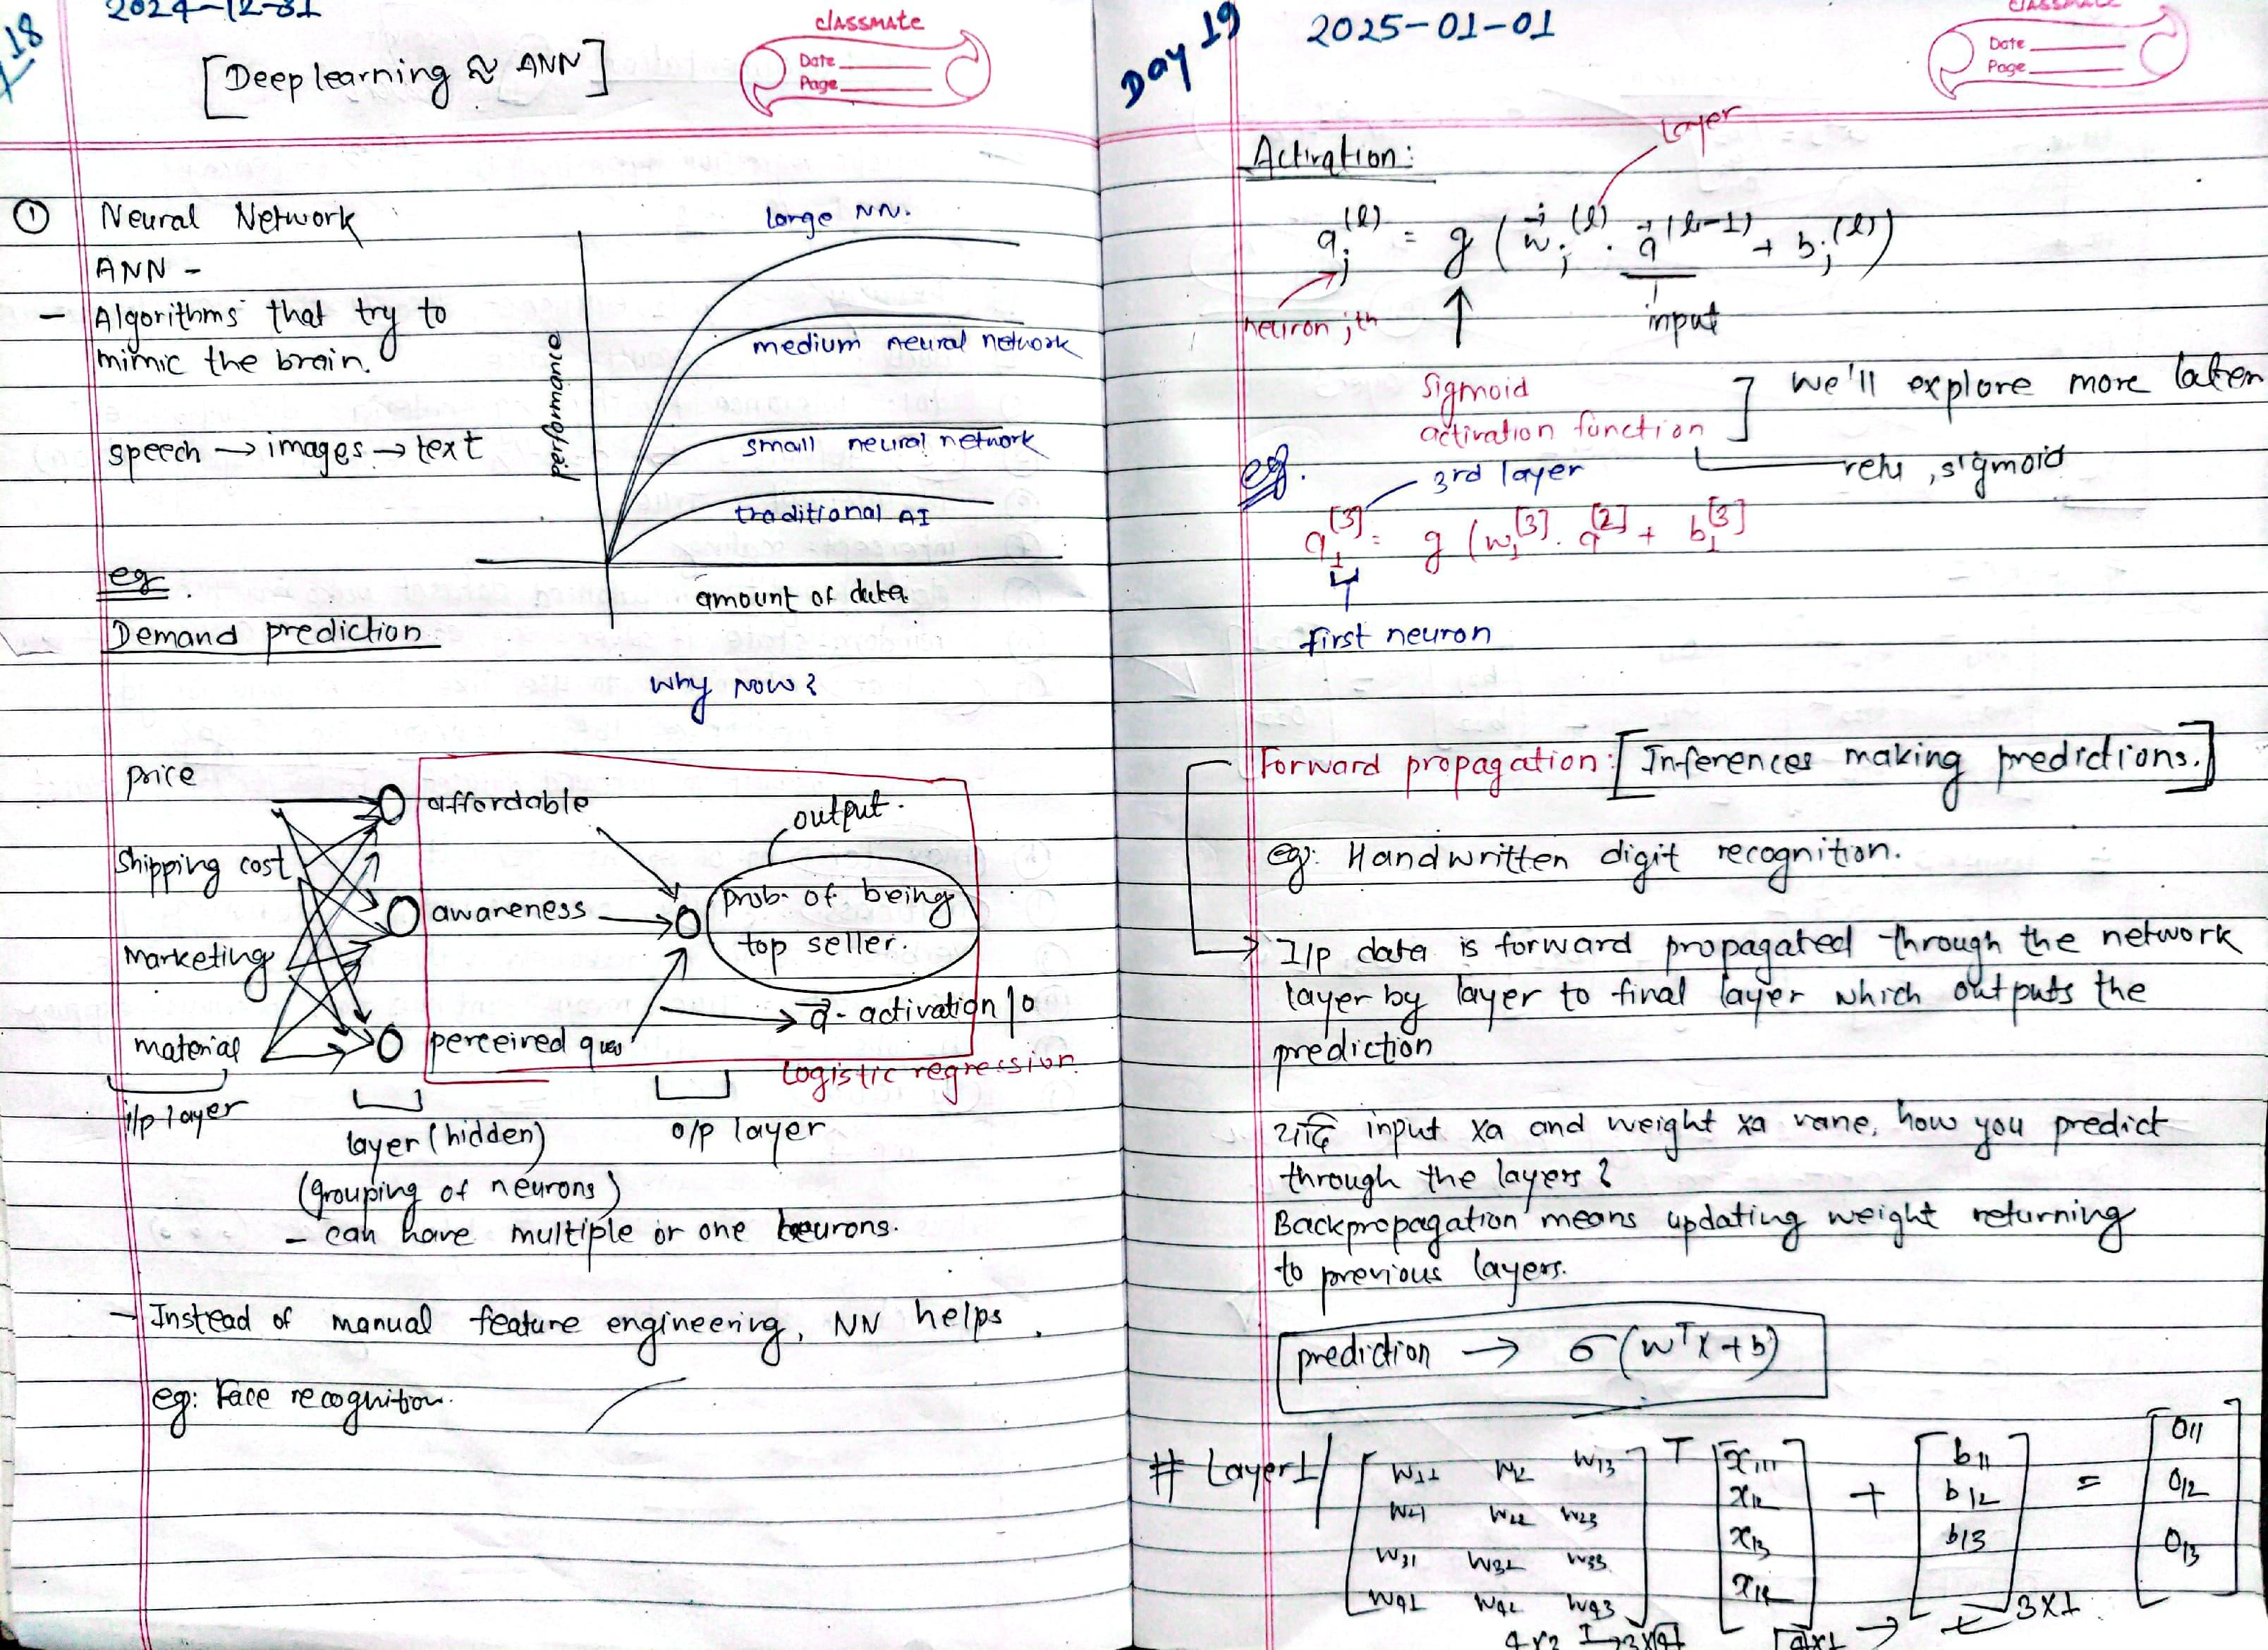 18
2024-12-31
[Deep learning ≈ ANN]
classmate
Date
Page
① Neural Network
ANN -
- Algorithms that try to
mimic the brain.
speech → images → text
large NN.
medium neural network
small neural network
traditional AI
performance
amount of data
why now?
eg.
Demand prediction
price
shipping cost
marketing
material
i/p layer
affordable
awareness
perceived
output.
prob. of being
top seller.
a⃗ - activation
logistic regression
layer (hidden)
(grouping of neurons)
- can have multiple or one neurons.
o/p layer
- Instead of manual feature engineering, NN helps.
eg: Face recognition.
Day 19
2025-01-01
classmate
Date
Page
Activation:
layer
a_j^(l) = g(w⃗_j^(l) . a⃗^(l-1) + b_j^(l))
neuron jth
input
Sigmoid
activation function ] we'll explore more later
relu, sigmoid
eg.
3rd layer
a_1^[3] = g(w_1^[3] . a^[2] + b_1^[3])
first neuron
Forward propagation: [Inferences making predictions.]
eg: Handwritten digit recognition.
→ I/p data is forward propagated through the network
layer by layer to final layer which outputs the
prediction
यदि input xa and weight xa vane, how you predict
through the layers?
Backpropagation means updating weight returning
to previous layers.
prediction → σ(w^T x + b)
# Layer1
w11 w12 w13 T x111 + b11 = o11
w21 w22 w23 x12 b12 o12
w31 w32 w33 x13 b13 o13
w41 w42 w43 x14
4x3 → 3x4 4x1 → 3x1